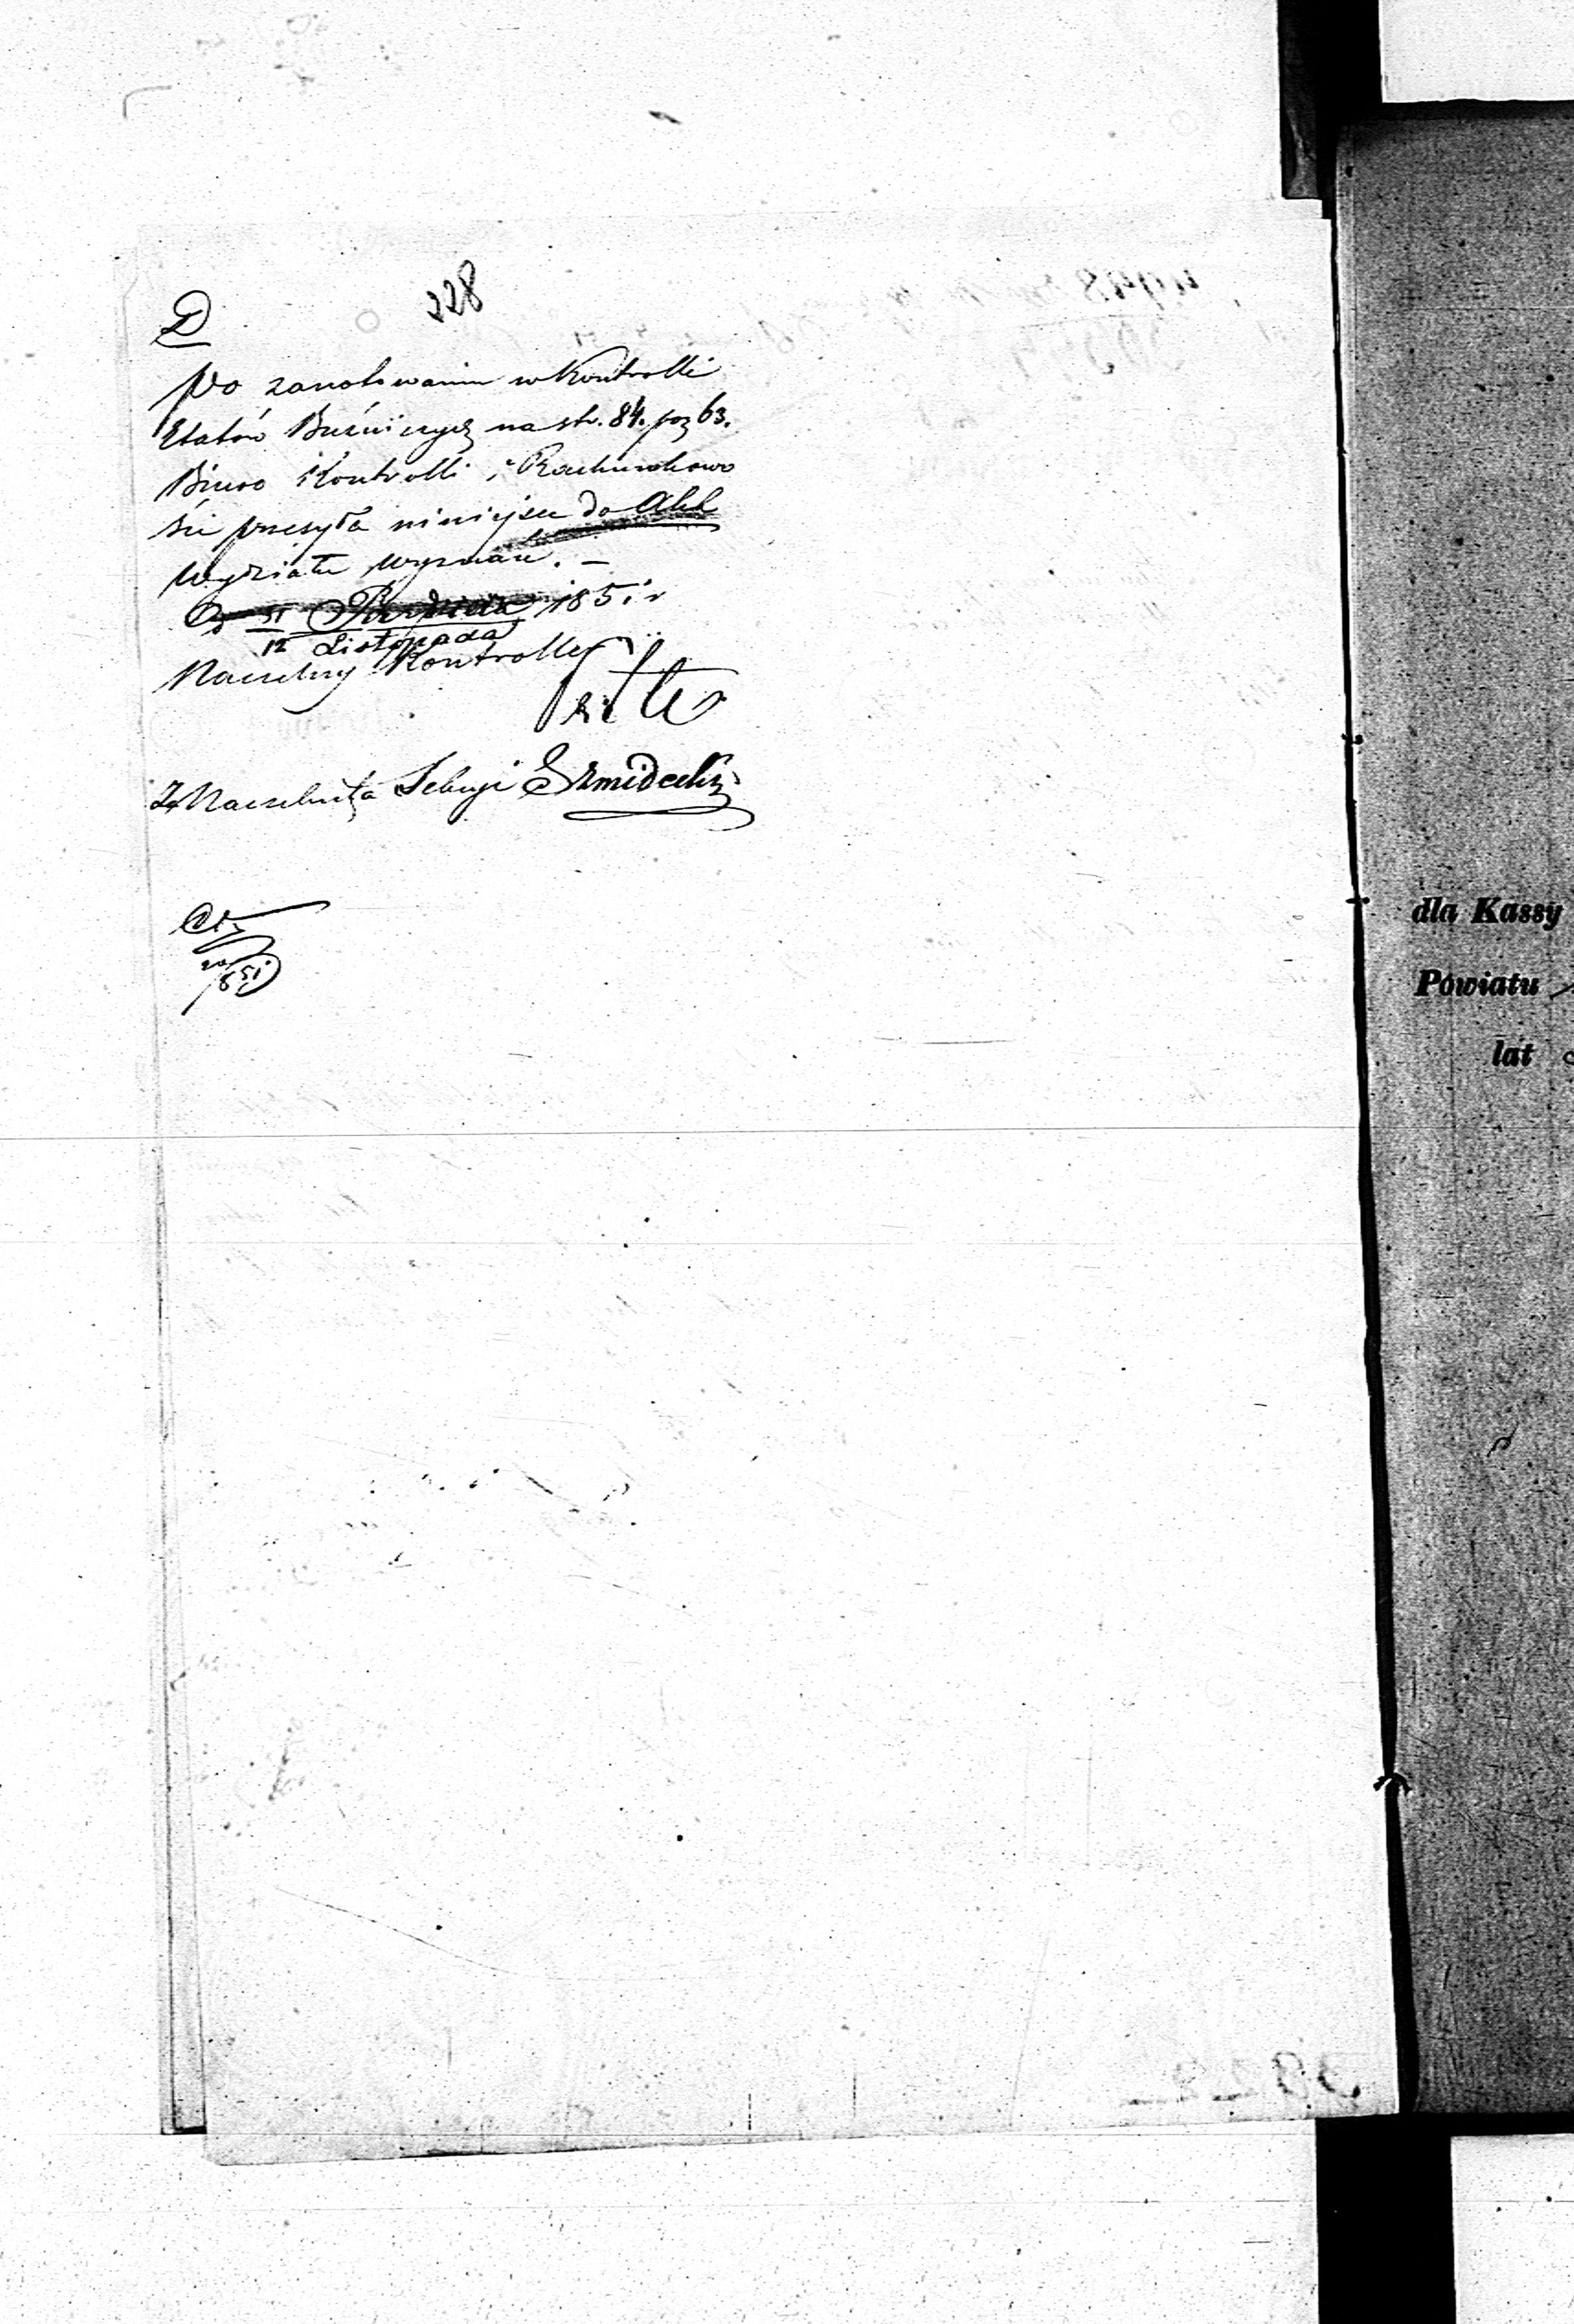 228
D
Po zanotowaniu w Kontrolli
Etatów Bużniczych na str. 84. poz 63.
Biuro Kontrolli i Rachunkowo
ści przesyła niniejsze do Akt
Wydziału Wyznań. –
31 Październ 1851 r
12 Listopada
Naczelny Kontroller
Za Naczelnika Sekcyi Szmidecki
851
dla Kassy
Powiatu
lat